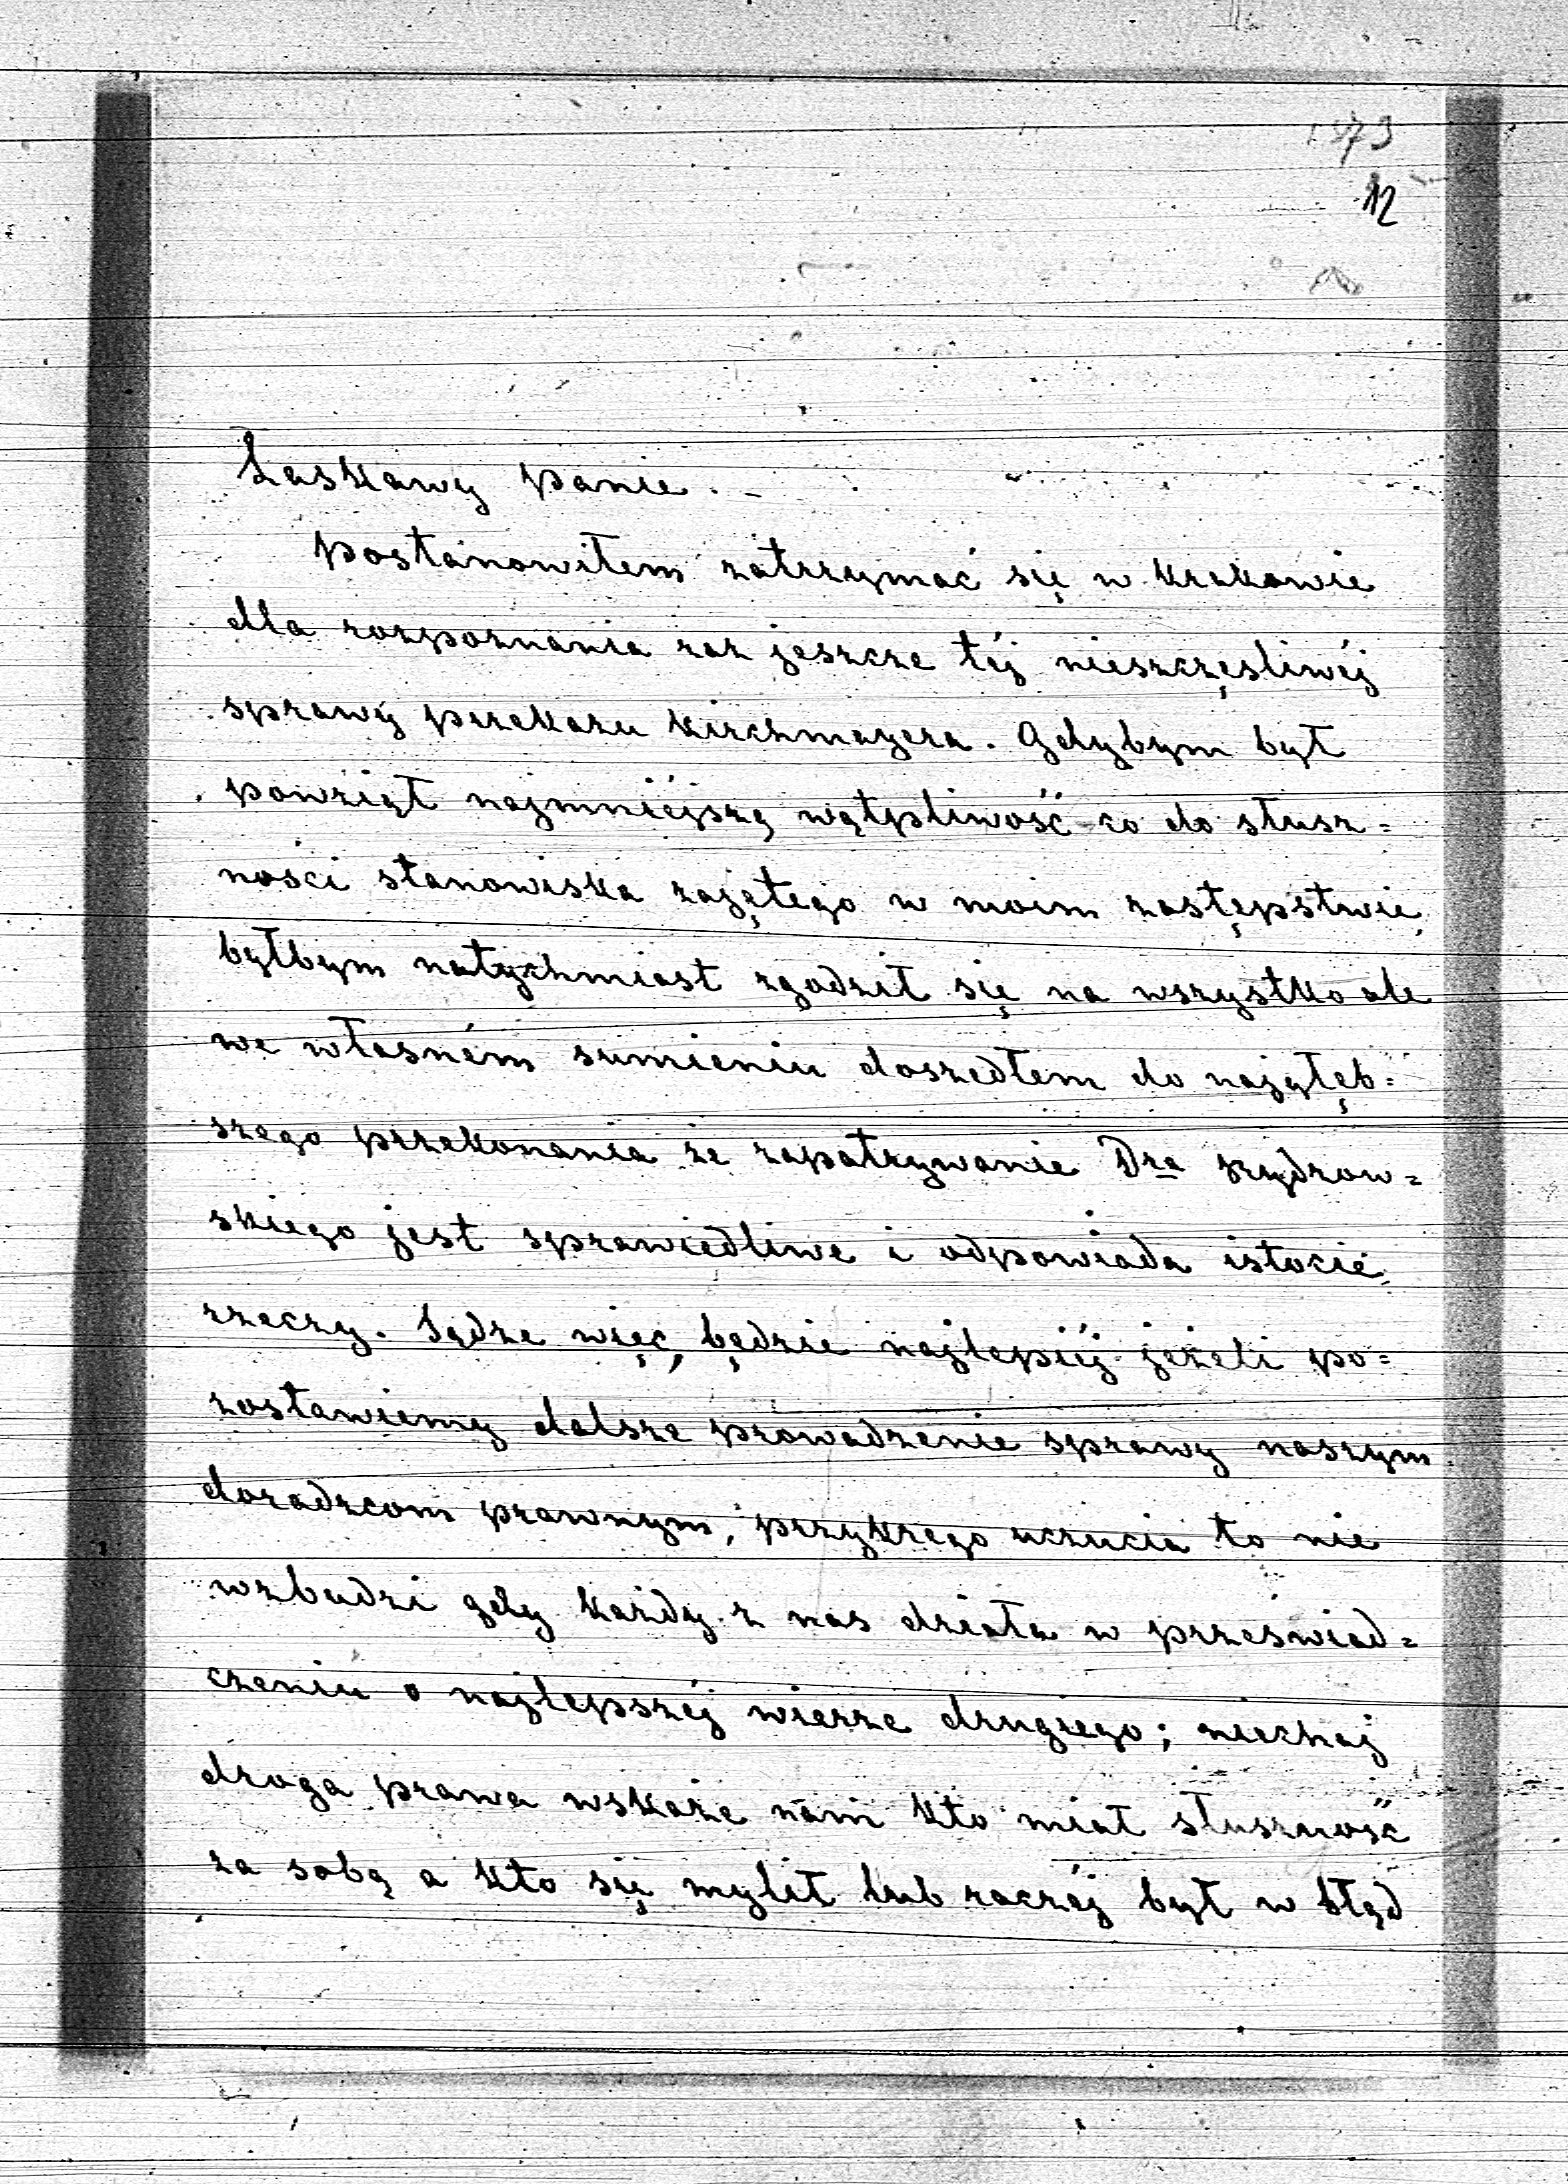 1873
12
Łaskawy panie. –
postanowiłem zatrzymać się w Krakowie
dla rozpoznania raz jeszcze téj nieszczęsliwéj
sprawy przekazu Kirchmayera. Gdybym był
powziął najmniéjszą wątpliwość co do słusz=
ności stanowiska zajętego w moim zastępstwie,
byłbym natychmiast zgodził się na wszystko ale
we własném sumieniu doszedłem do najgłęb=
szego przekonania że zapatrywanie Dra
skiego jest sprawiedliwe i odpowiada istocie
rzeczy. Sądze więc, będzie najlepiéj jeżeli po=
zostawiemy dalsze prowadzenie sprawy naszym
doradzcom prawnym, przykrego uczucia to nie
wzbudzi gdy każdy z nas działa w przeświad=
czeniu o najlepszéj wierze drugiego; niechaj
droga prawa wskaże nam kto miał słuszność
za sobą a kto się mylił lub raczéj był w błąd